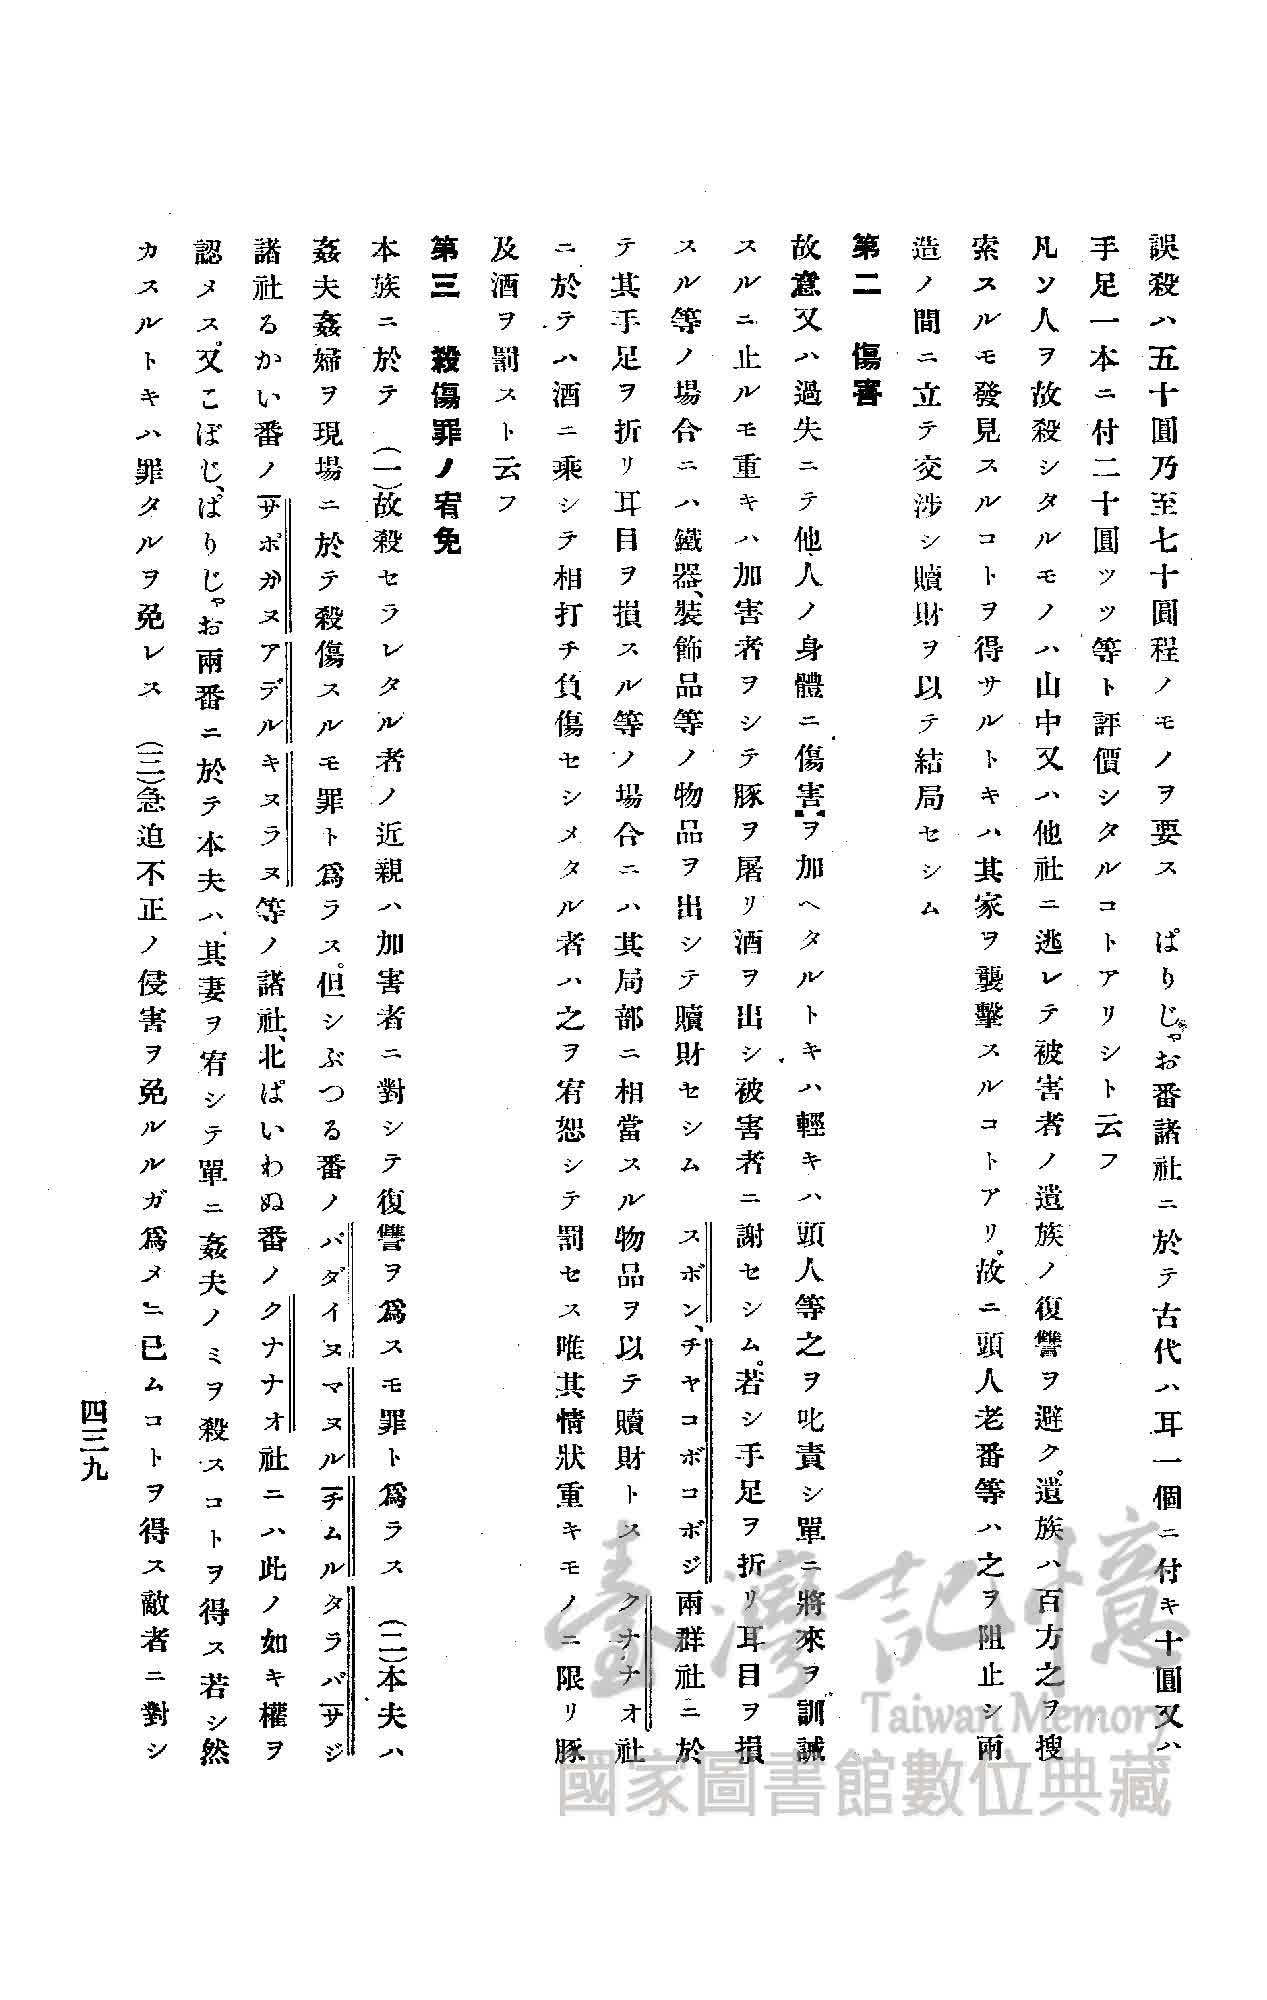 誤殺ハ五十圓乃至七十圓程ノモノヲ要ス　ぱりじゃお番諸社ニ於テ古代ハ耳一個ニ付キ十圓又ハ
手足一本ニ付二十圓ツツ等ト評價シタルコトアリシト云フ
凡ソ人ヲ故殺シタルモノハ山中又ハ他社ニ逃レテ被害者ノ遺族ノ復讐ヲ避ク。遺族ハ百方之ヲ搜
索スルモ發見スルコトヲ得サルトキハ其家ヲ襲擊スルコトアリ。故ニ頭人老番等ハ之ヲ阻止シ兩
造ノ間ニ立テ交涉シ贖財ヲ以テ結局セシム
第二　傷害
故意又ハ過失ニテ他人ノ身體ニ傷害ヲ加ヘタルトキハ輕キハ頭人等之ヲ叱責シ單ニ將來ヲ訓誡
スルニ止ルモ重キハ加害者ヲシテ豚ヲ屠リ酒ヲ出シ被害者ニ謝セシム。若シ手足ヲ折リ耳目ヲ損
スル等ノ場合ニハ鐵器、裝飾品等ノ物品ヲ出シテ贖財セシム　スボン、チヤコボコボジ兩群社ニ於
テ其手足ヲ折リ耳目ヲ損スル等ノ場合ニハ其局部ニ相當スル物品ヲ以テ贖財トス　クナナオ社
ニ於テハ酒ニ乘シテ相打チ負傷セシメタル者ハ之ヲ宥恕シテ罰セス唯其情狀重キモノニ限リ豚
及酒ヲ罰スト云フ
第三　殺傷罪ノ宥免
本族ニ於テ　(一)故殺セラレタル者ノ近親ハ加害者ニ對シテ復讐ヲ爲スモ罪ト爲ラス　(二)本夫ハ
姦夫姦婦ヲ現場ニ於テ殺傷スルモ罪ト爲ラス。但シぶつる番ノパダイヌマヌルチムルタラバサジ
諸社るかい番ノサポガヌアデルキヌラヌ等ノ諸社、北ぱいわぬ番ノクナナオ社ニハ此ノ如キ權ヲ
認メス。又こぼじ、ぱりじゃお兩番ニ於テ本夫ハ其妻ヲ宥シテ單ニ姦夫ノミヲ殺スコトヲ得ス若シ然
カスルトキハ罪タルヲ免レス　(三)急迫不正ノ侵害ヲ免ルルガ爲メニ已ムコトヲ得ス敵者ニ對シ
四三九
臺灣記憶
Taiwan Memory
國家圖書館數位典藏